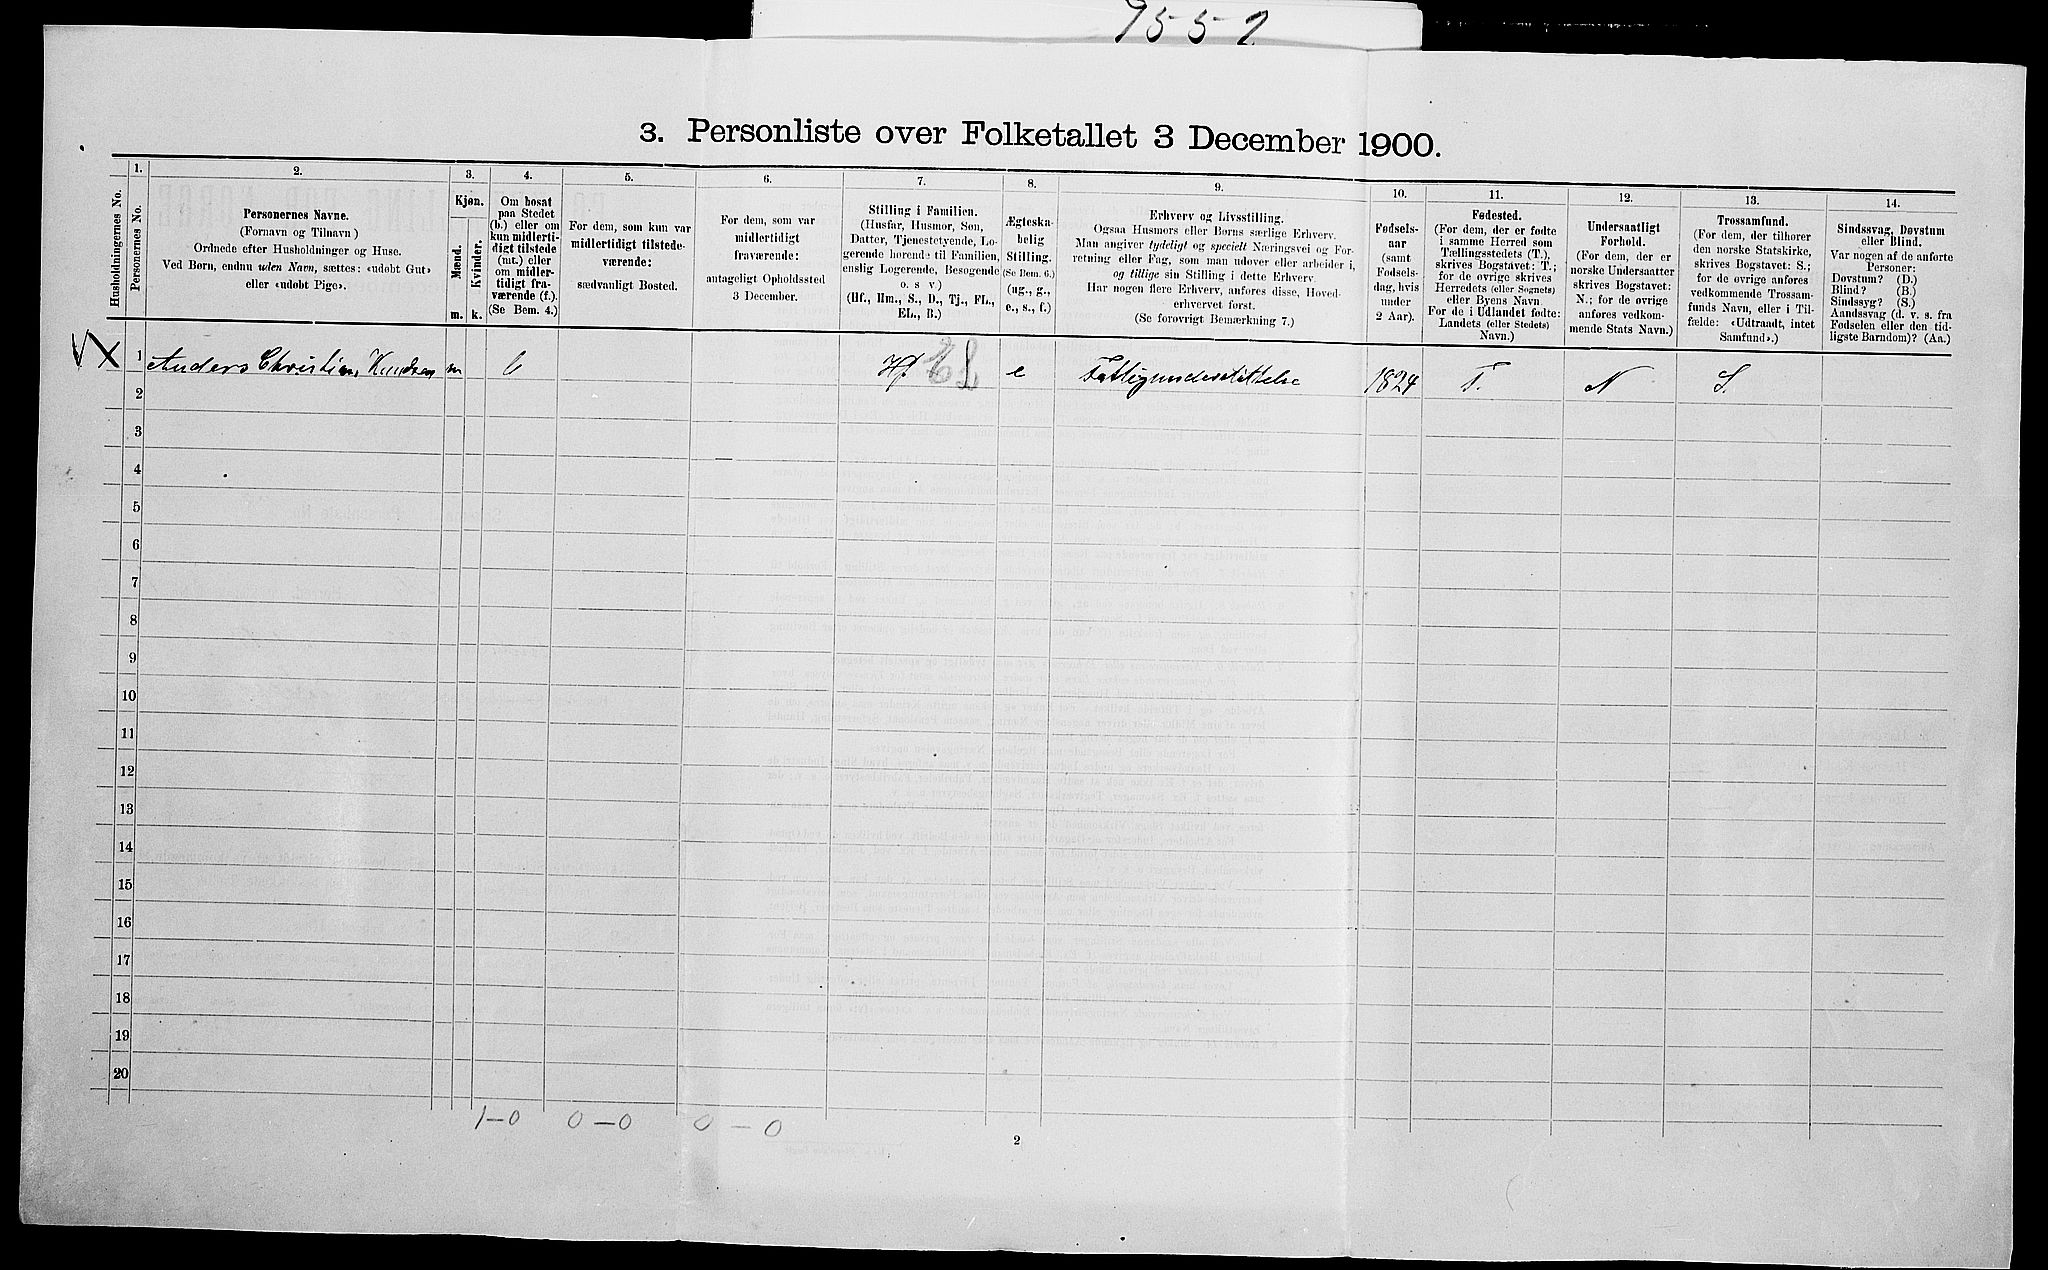 9552
3. Personliste over Folketallet 3 December 1900.
Husholdningernes No.
1.
Personernes No.
2.
Personernes Navne.
(Fornavn og Tilnavn)
Ordnede efter Husholdninger og Huse.
Ved Børn, endnu uden Navn, sættes: «udøbt Gut»
eller «udøbt Pige».
3.
Kjøn.
Mænd.
Kvinder.
m.
k.
4.
Om bosat
paa Stedet
(b.) eller om
kun midlerti-
digt tilstede
(mt.) eller
om midler-
tidigt fra-
værende (f.).
(Se Bem. 4.)
5.
For dem, som kun var
midlertidigt tilstede-
værende:
sædvanligt Bosted.
6.
For dem, som var
midlertidigt
fraværende:
antageligt Opholdssted
3 December.
7.
Stilling i Familien.
(Husfar, Husmor, Søn,
Datter, Tjenestetyende, Lo-
gerende hørende til Familien,
enslig Logerende, Besøgende
o. s. v.)
(Hf., Hm., S., D., Tj., FL.,
EL., B.)
8.
Ægteska-
belig
Stilling.
(Se Bem. 6.)
(ug., g.,
e., s., f.)
9.
Erhverv og Livsstilling.
Ogsaa Husmors eller Børns særlige Erhverv.
Man angiver tydeligt og specielt Næringsvei og For-
retning eller Fag, som man udøver eller arbeider i,
og tillige sin Stilling i dette Erhverv.
Har nogen flere Erhverv, anføres disse, Hoved-
erhvervet først.
(Se forøvrigt Bemærkning 7.)
10.
Fødsels-
aar
(samt
Fødsels-
dag, hvis
under
2 Aar).
11.
Fødested.
(For dem, der er fødte
i samme Herred som
Tællingsstedets (T.),
skrives Bogstavet: T.;
for de øvrige skrives
Herredets (eller Sognets)
eller Byens Navn.
For de i Udlandet fødte:
Landets (eller Stedets)
Navn.)
12.
Undersaatligt
Forhold.
(For dem, der er
norske Undersaatter
skrives Bogstavet:
N.; for de øvrige
anføres vedkom-
mende Stats Navn.)
13.
Trossamfund.
(For dem, der tilhører
den norske Statskirke,
skrives Bogstavet: S.;
for de øvrige anføres
vedkommende Trossam-
funds Navn, eller i Til-
fælde: «Udtraadt, intet
Samfund».)
14.
Sindssvag, Døvstum
eller Blind.
Var nogen af de anførte
Personer:
Døvstum? (D.)
Blind? (B.)
Sindssyg? (S.)
Aandssvag (d. v. s. fra
Fødselen eller den tid-
ligste Barndom)? (Aa.)
X 1 Anders Christian Knudsen m b Hf EL e Fattigunderstøttelse 1824 T. N S.
2
3
4
5
6
7
8
9
10
11
12
13
14
15
16
17
18
19
20
1-0 0-0 0-0
2